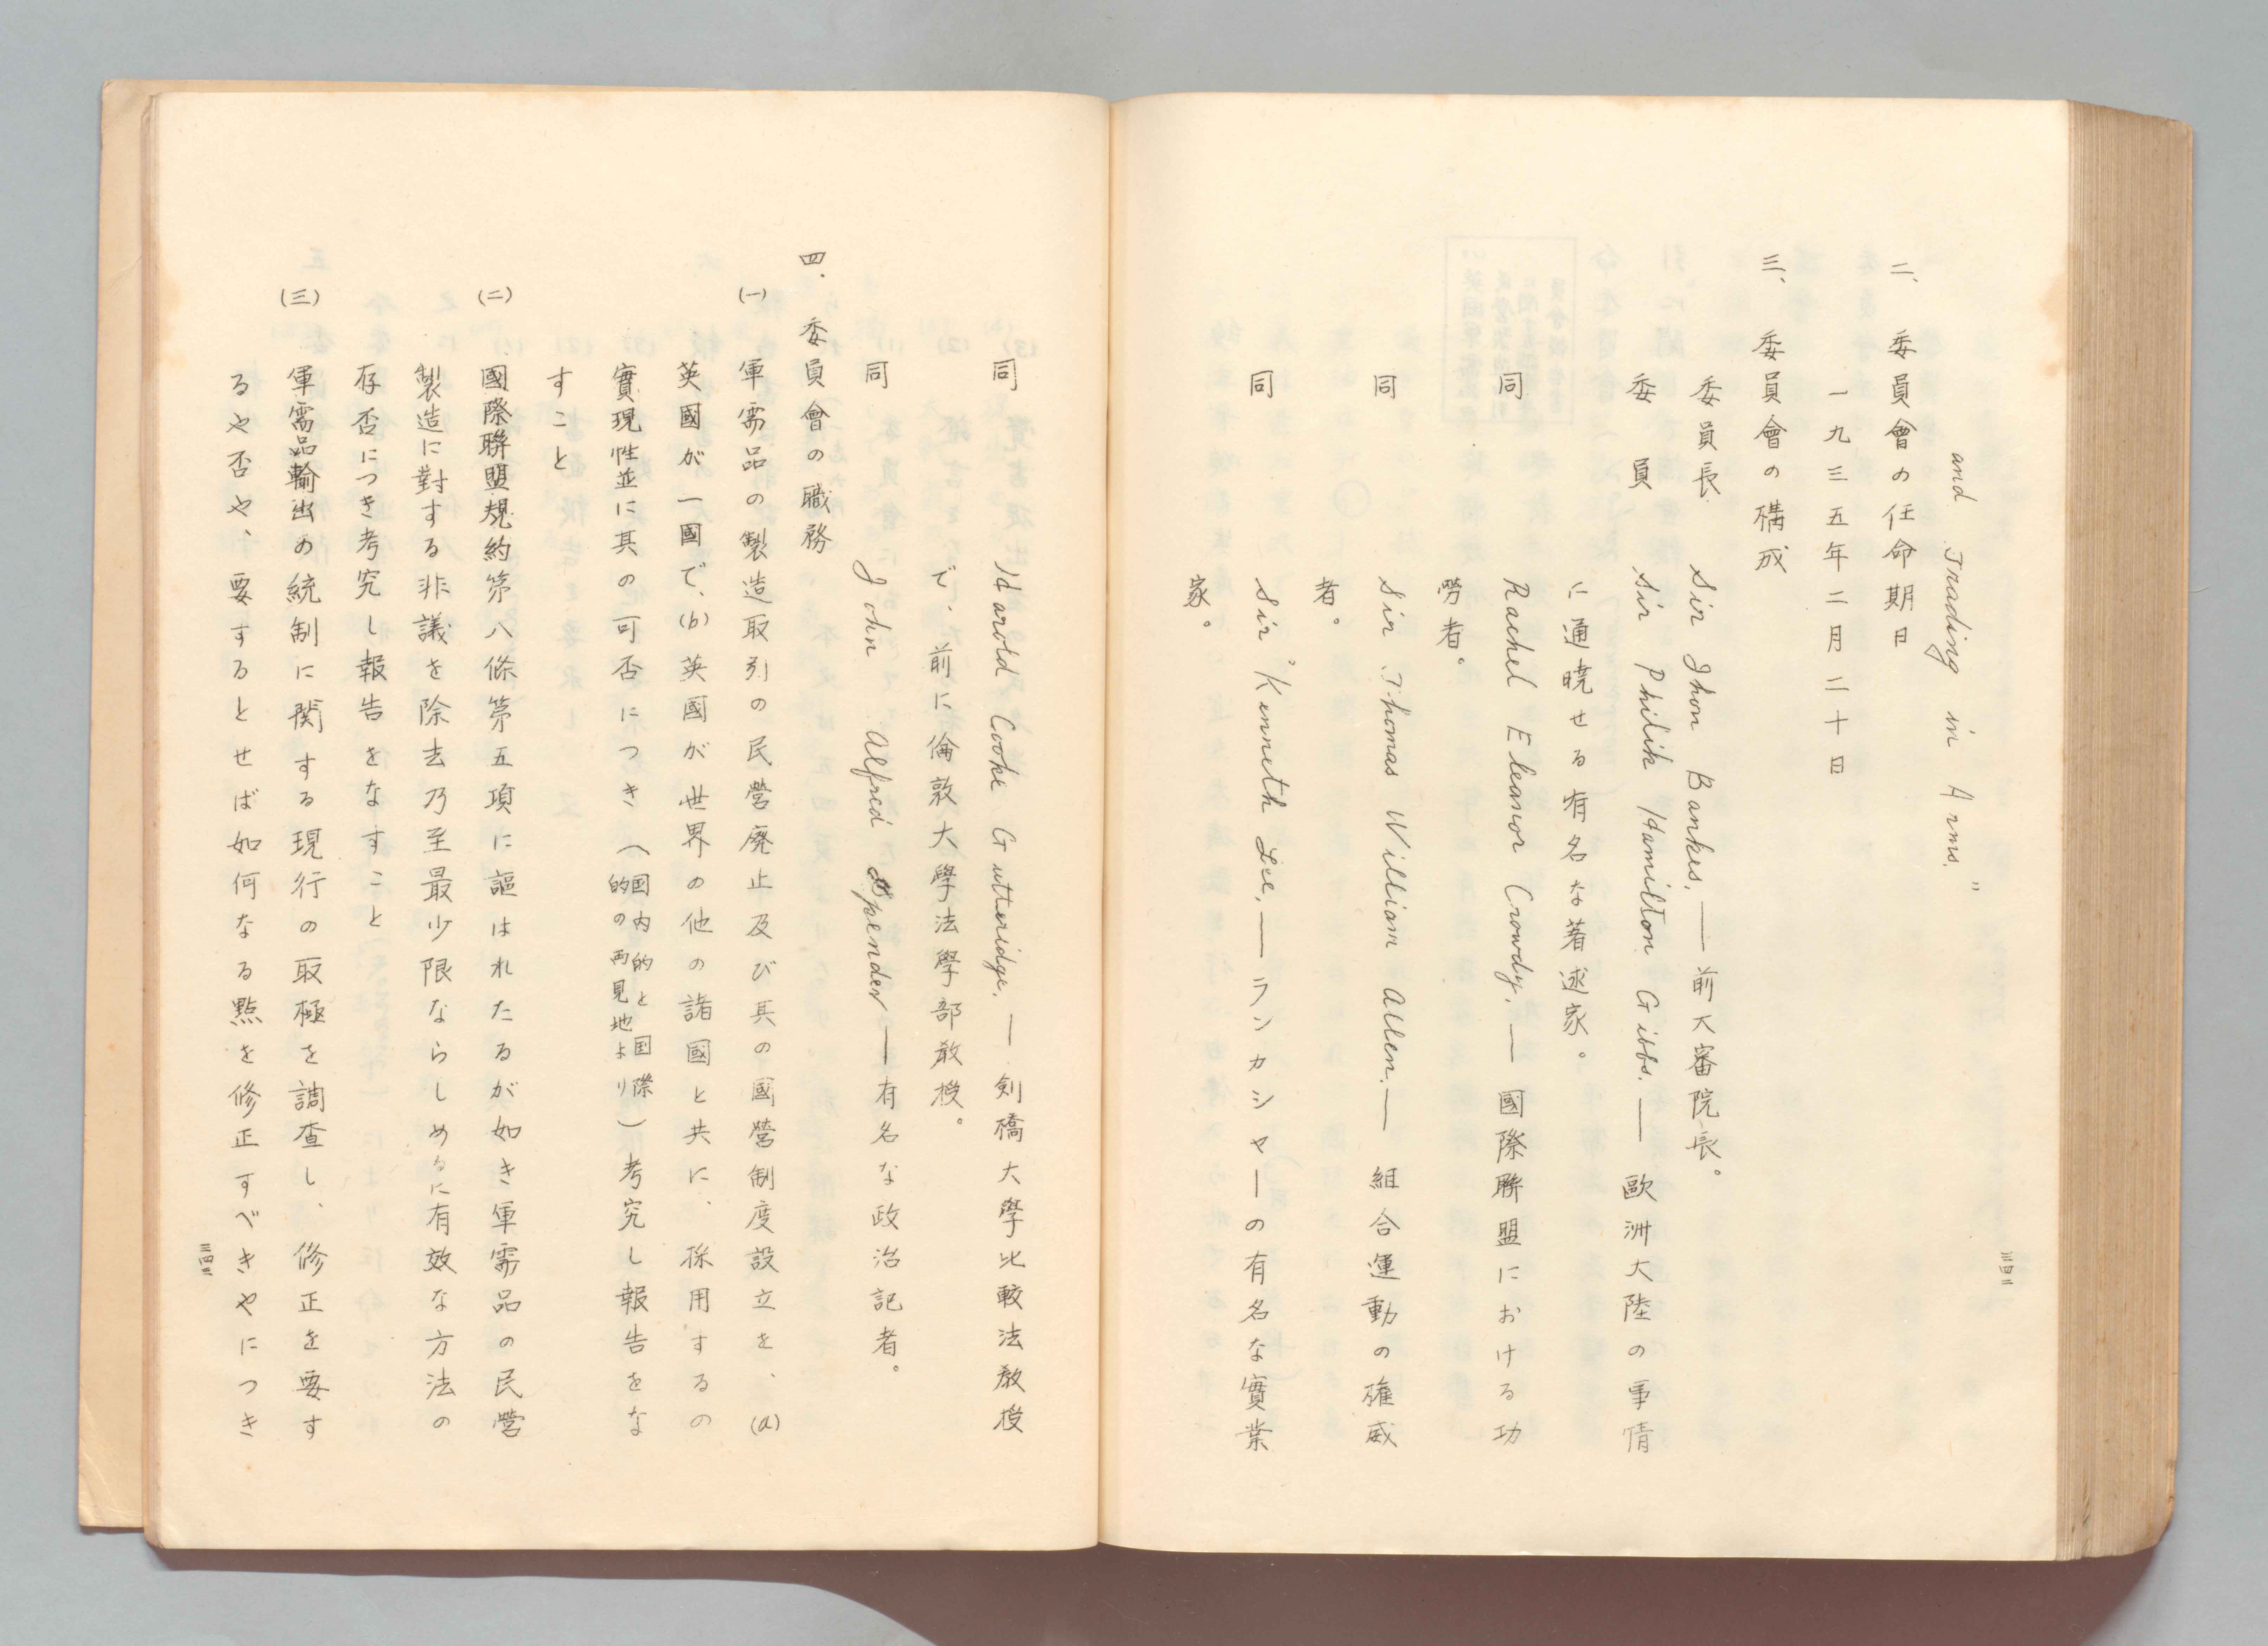 and Trading in Arms."
二、委員會の任命期日
一九三五年二月二十日
三、委員會の構成
委員長 Sir Jhon Bankes, — 前大審院長。
委員 Sir Philik Hamilton Gibbs. — 歐洲大陸の事情
に通曉せる有名な著述家。
同 Rachel Eleanor Crowdy. — 國際聯盟における功
勞者。
同 Sir Thomas William Allen. — 組合運動の権威
者。
同 Sir Kenneth Lee, — ランカシャーの有名な實業
家。
三四二
同 Harold Cooke Gutteridge, — 剣橋大學比較法教授
で、前に倫敦大學法學部教授。
同 John Alfred Spender — 有名な政治記者。
四、委員會の職務
(一) 軍需品の製造取引の民營廃止及び其の國營制度設立を、(a)
英國が一國で、(b)英國が世界の他の諸國と共に、採用するの
實現性並に其の可否につき(国内的と国際的の両見地より)考究し報告をな
すこと
(二) 國際聯盟規約第八條第五項に謳はれたるが如き軍需品の民營
製造に對する非議を除去乃至最少限ならしめるに有效な方法の
存否につき考究し報告をなすこと
(三) 軍需品輸出の統制に関する現行の取極を調査し、修正を要す
るや否や、要するとせば如何なる點を修正すべきやにつき
三四三